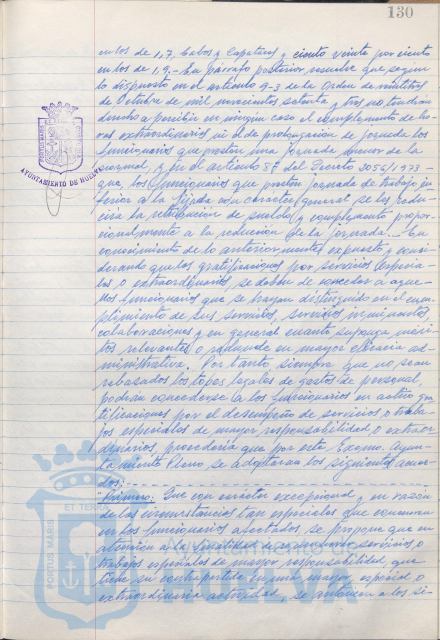 130
en los de 1,7, Cabos y Capataces y ciento veinte por ciento
en los de 1,9.- En párrafo posterior, resuelve que según
lo dispuesto en el artículo 9-3 de la Orden de veintitrés
de Octubre de mil novecientos setenta y tres no tendrán
derecho a percibir en ningún caso el complemento de ho-
ras extraordinarias ni el de prolongación de jornada los
funcionarios que presten una jornada menor de la
normal, y en el artículo 5º del Decreto 2056/1973-
que, los funcionarios que presten jornada de trabajo in-
ferior a la fijada con carácter general se les redu-
cirá la retribución de sueldo y complemento propor-
cionalmente a la reducción de la jornada.- En
conocimiento de lo anteriormente expuesto y consi-
derando que las gratificaciones por servicios especia-
les o extraordinarios se deben de conceder a aque-
llos funcionarios que se hayan distinguido en el cum-
plimiento de sus servicios, servicios
colaboraciones y en general cuanto suponga méri-
tos relevantes o redunde en mayor eficacia ad-
ministrativa. Por tanto, siempre que no sean
rebasados los topes legales de gastos de personal,
podrán concederse a los funcionarios en activo gra-
tificaciones por el desempeño de servicios o traba-
jos especiales de mayor responsabilidad o extraor-
dinarios, procedería que por este Excmo. Ayun-
tamiento Pleno se adoptaran los siguientes acuer-
dos:
"Primero: Que con carácter excepcional y en razón
de las circunstancias tan especiales que concurren
en los funcionarios afectados, se propone que en
atención a la finalidad de remunerar servicios o
trabajos especiales de mayor responsabilidad, que
tiene su contrapartida en una mayor, especial o
extraordinaria actividad, se a los si-
AYUNTAMIENTO DE HUELVA
PORTUS MARIS
ET TERRAE
Ayuntamiento de
HUELVA